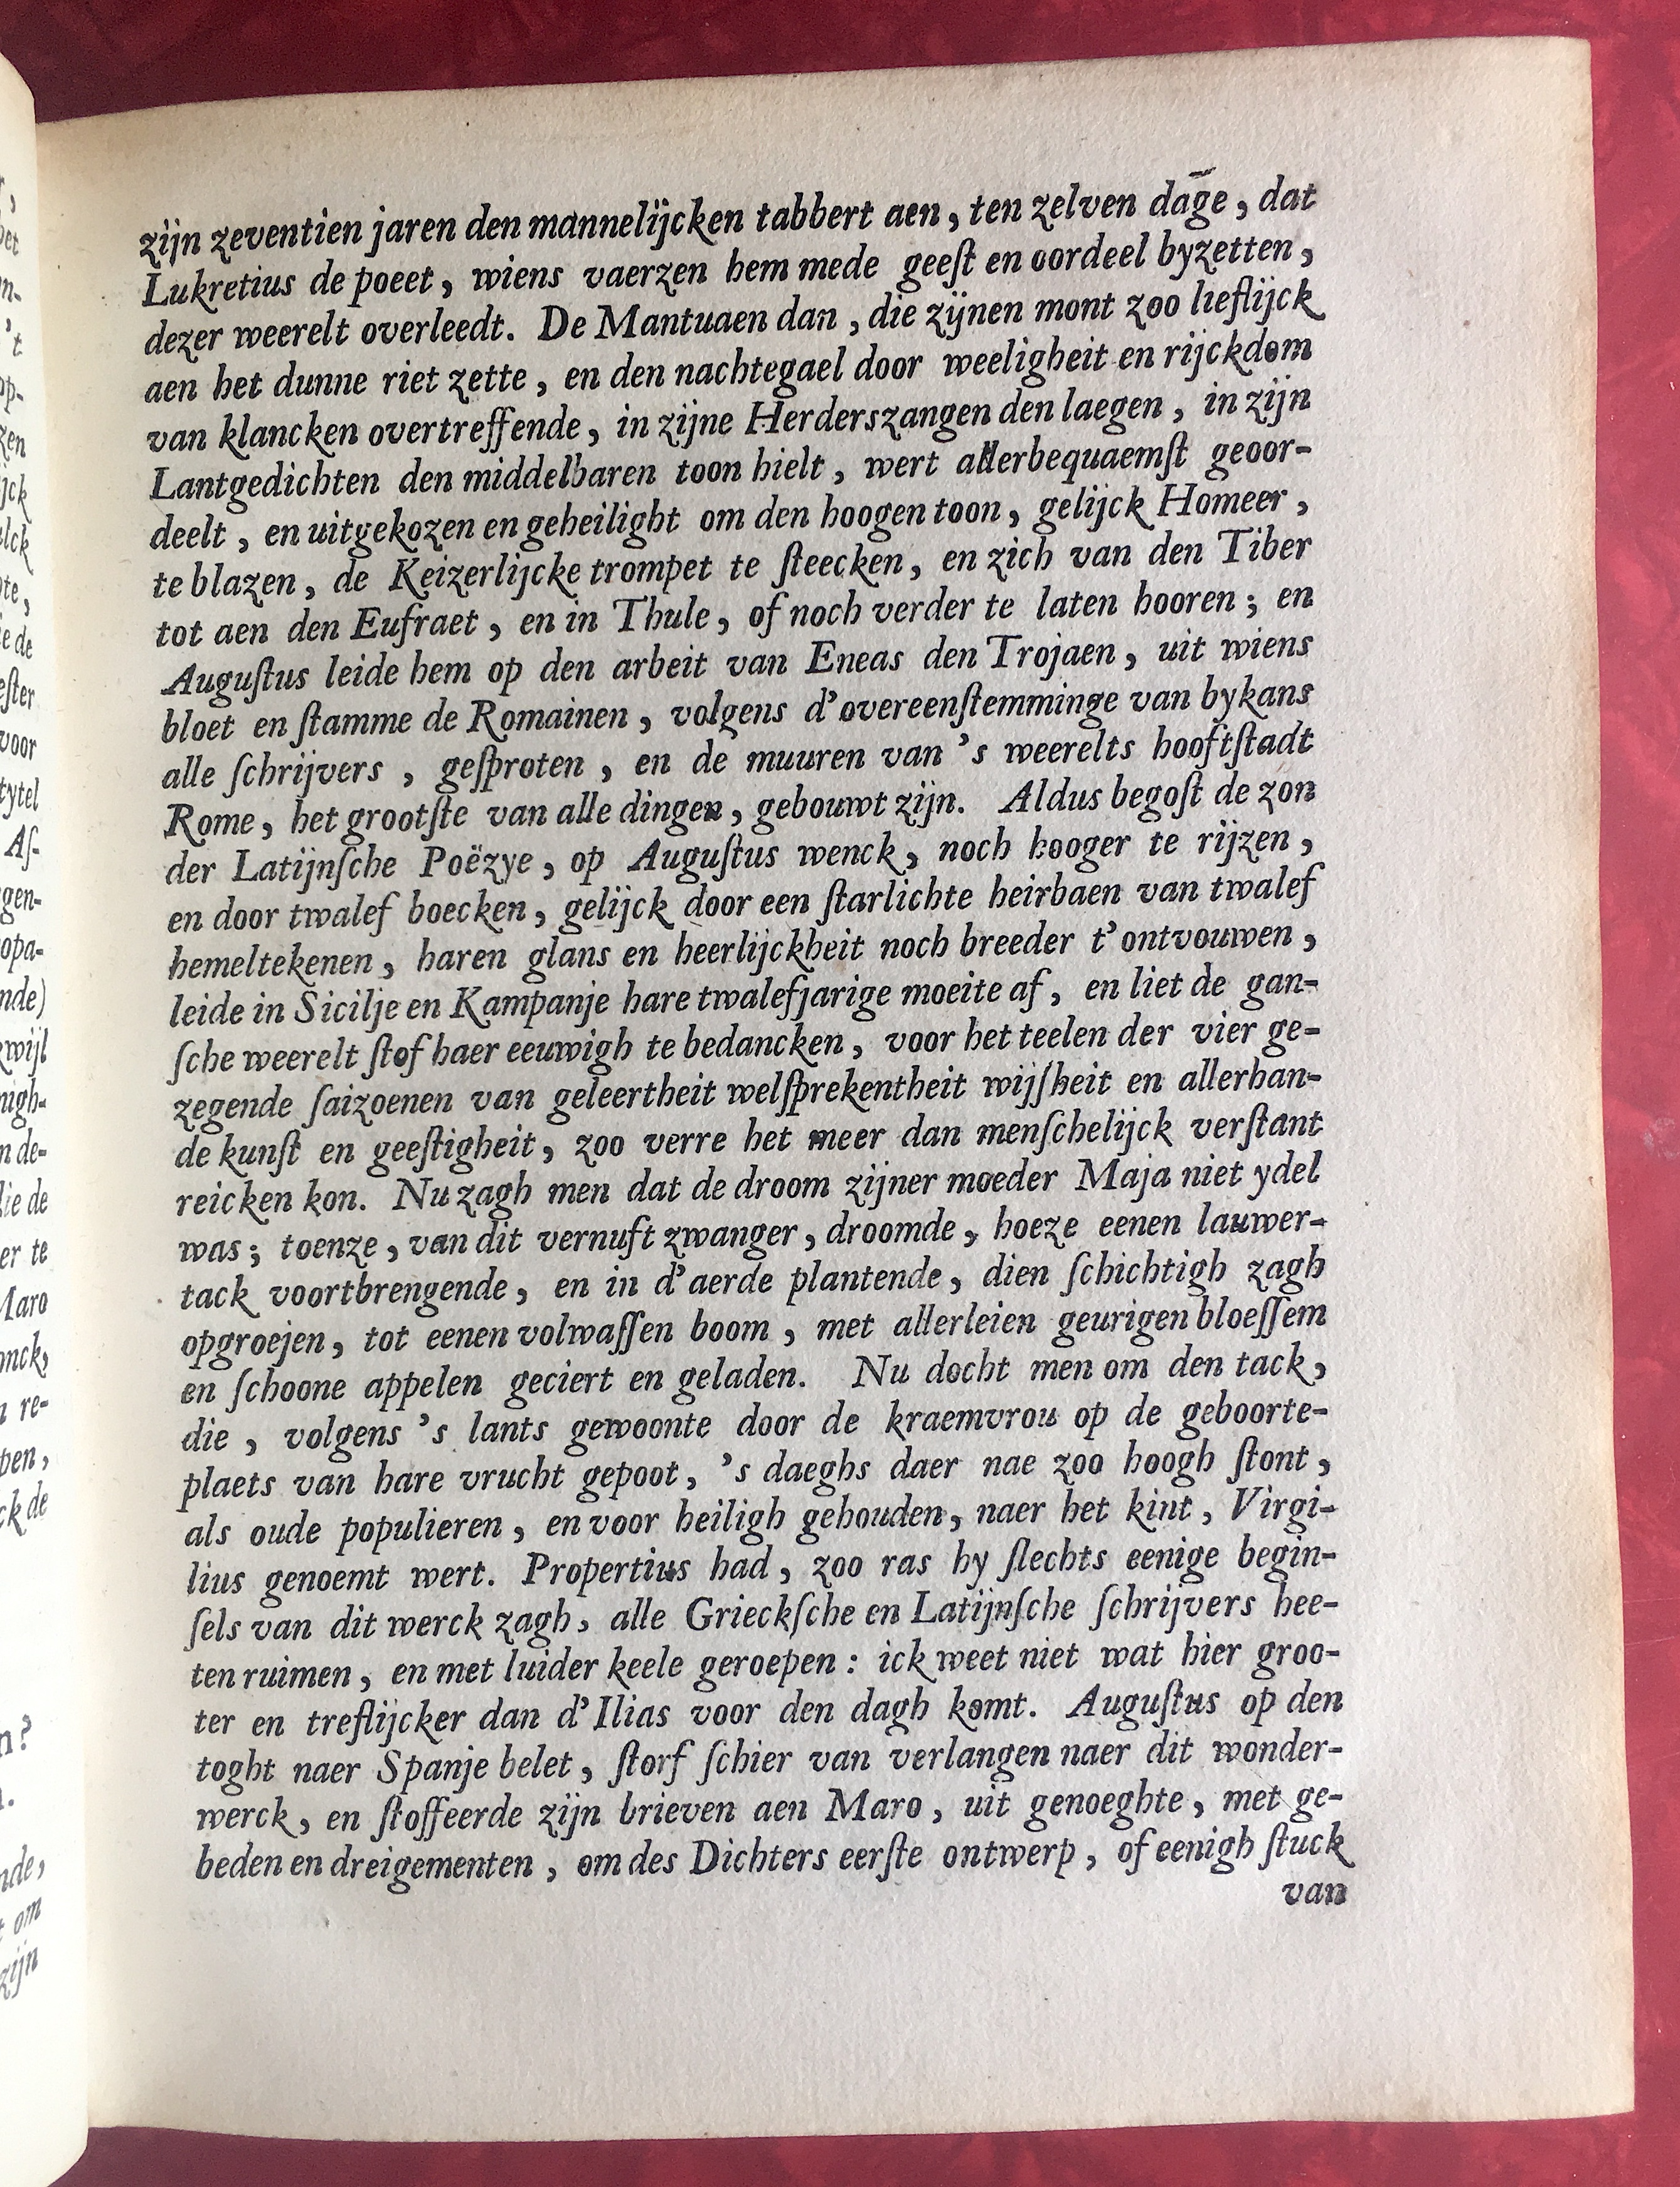 zijn zeventien jaren den mannelijcken tabbert aen, ten zelven dage, dat
Lukretius de poeet, wiens vaerzen hem mede geeſt en oordeel byzetten,
dezer weerelt overleedt. De Mantuaen dan, die zijnen mont zoo lieflijck
aen het dunne riet zette, en den nachtegael door weeligheit en rijckdom
van klancken overtreffende, in zijne Herderszangen den laegen, in zijn
Lantgedichten den middelbaren toon hielt, wert allerbequaemſt geoor-
deelt, en uitgekozen en geheilight om den hoogen toon, gelijck Homeer,
te blazen, de Keizerlijcke trompet te ſteecken, en zich van den Tiber
tot aen den Eufraet, en in Thule, of noch verder te laten hooren; en
Auguſtus leide hem op den arbeit van Eneas den Trojaen, uit wiens
bloet en ſtamme de Romainen, volgens d'overeenſtemminge van bykans
alle ſchrijvers, geſproten, en de muuren van 's weerelts hooftſtadt
Rome, het grootſte van alle dingen, gebouwt zijn. Aldus begoſt de zon
der Latijnſche Poëzye, op Auguſtus wenck, noch hooger te rijzen,
en door twalef boecken, gelijck door een ſtarlichte heirbaen van twalef
hemeltekenen, haren glans en heerlijckheit noch breeder t'ontvouwen,
leide in Sicilje en Kampanje hare twalefjarige moeite af, en liet de gan-
ſche weerelt ſtof haer eeuwigh te bedancken, voor het teelen der vier ge-
zegende ſaizoenen van geleertheit welſprekentheit wijſheit en allerhan-
de kunſt en geeſtigheit, zoo verre het meer dan menſchelijck verſtant
reicken kon. Nu zagh men dat de droom zijner moeder Maja niet ydel
was; toenze, van dit vernuft zwanger, droomde, hoeze eenen lauwer-
tack voortbrengende, en in d'aerde plantende, dien ſchichtigh zagh
opgroejen, tot eenen volwaſſen boom, met allerleien geurigen bloeſſem
en ſchoone appelen geciert en geladen. Nu docht men om den tack,
die, volgens 's lants gewoonte door de kraemvrou op de geboorte-
plaets van hare vrucht gepoot, 's daeghs daer nae zoo hoogh ſtont,
als oude populieren, en voor heiligh gehouden, naer het kint, Virgi-
lius genoemt wert. Propertius had, zoo ras hy ſlechts eenige begin-
ſels van dit werck zagh, alle Grieckſche en Latijnſche ſchrijvers hee-
ten ruimen, en met luider keele geroepen: ick weet niet wat hier groo-
ter en treflijcker dan d'Ilias voor den dagh komt. Auguſtus op den
toght naer Spanje belet, ſtorf ſchier van verlangen naer dit wonder-
werck, en ſtoffeerde zijn brieven aen Maro, uit genoeghte, met ge-
beden en dreigementen, om des Dichters eerſte ontwerp, of eenigh ſtuck
van